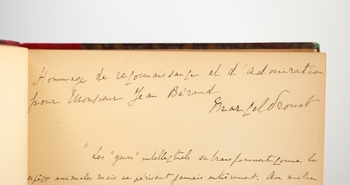 Hommage de reconnaissance et d'admiration
pour Monsieur Jean Béraud
Marcel Proust
"Les "gens" intellectuels se transforment comme les
espèces animales mais ne périssent jamais entièrement. Au milieu